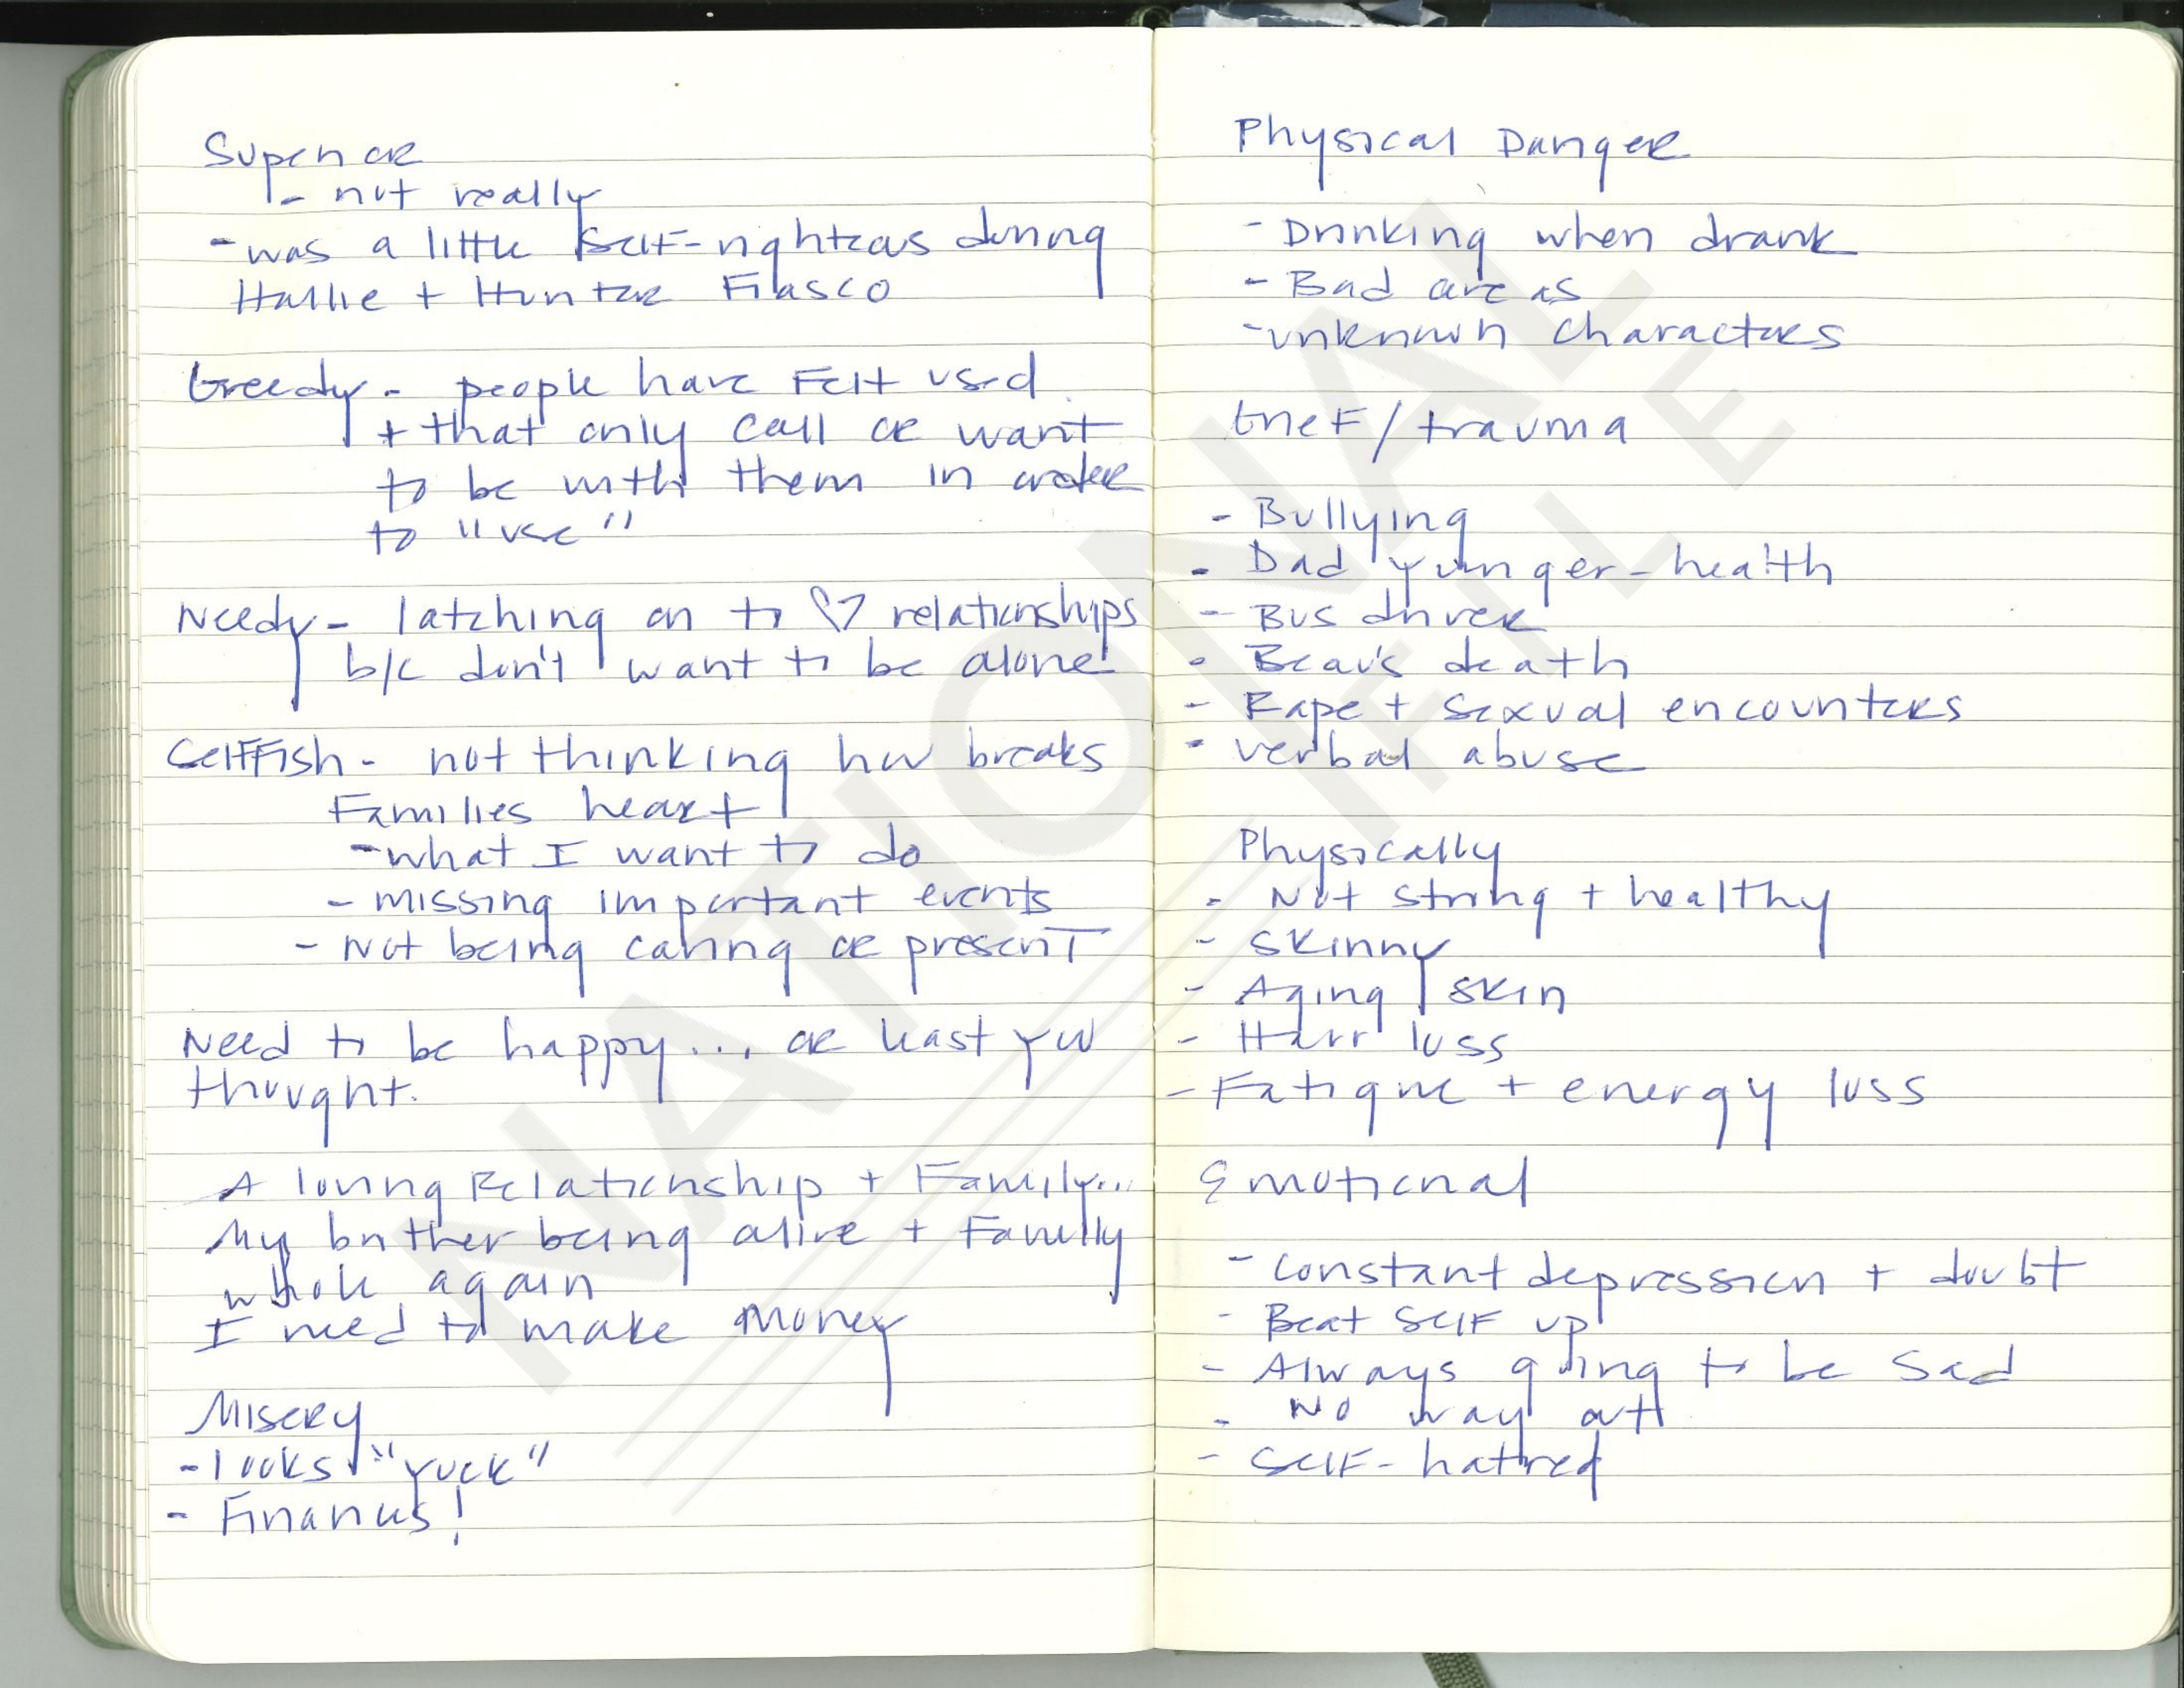 Superior
- not really
- was a little self-righteous during
Hallie + Hunter Fiasco
Greedy - people have felt used
+ that only call or want
to be with them in order
to "use"
Needy - latching on to ♡ relationships
b/c don't want to be alone
Selffish - not thinking how breaks
Families heart
- what I want to do
- missing important events
- Not being caring or present
Need to be happy... or least you
thought.
A loving Relationship + Family...
My brother being alive + Family
whole again
I need to make money
Misery
- looks "yuck"
- Finances!
Physical Danger
- Drinking when drank
- Bad areas
- unknown characters
Grief/trauma
- Bullying
- Dad younger - health
- Bus driver
- Beau's death
- Rape + sexual encounters
- verbal abuse
Physically
- Not strong + healthy
- Skinny
- Aging skin
- Hair loss
- Fatigue + energy loss
Emotional
- Constant depression + doubt
- Beat self up
- Always going to be sad
- No way out
- Self-hatred
NATIONAL
FILE